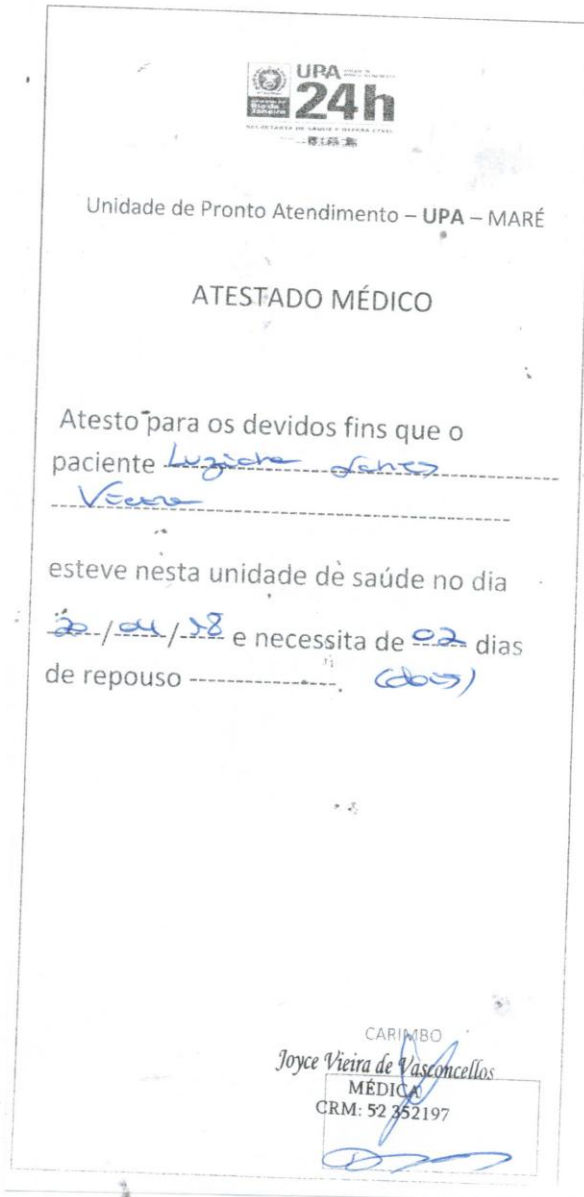 UPA
24h
Rio de Janeiro
SECRETARIA DE SAÚDE E DEFESA CIVIL
Unidade de Pronto Atendimento – UPA – MARÉ
ATESTADO MÉDICO
Atesto para os devidos fins que o
paciente
esteve nesta unidade de saúde no dia
20/04/18 e necessita de 02 dias
de repouso ---------------. (dois)
CARIMBO
Joyce Vieira de Vasconcellos
MÉDICA
CRM: 52 352197